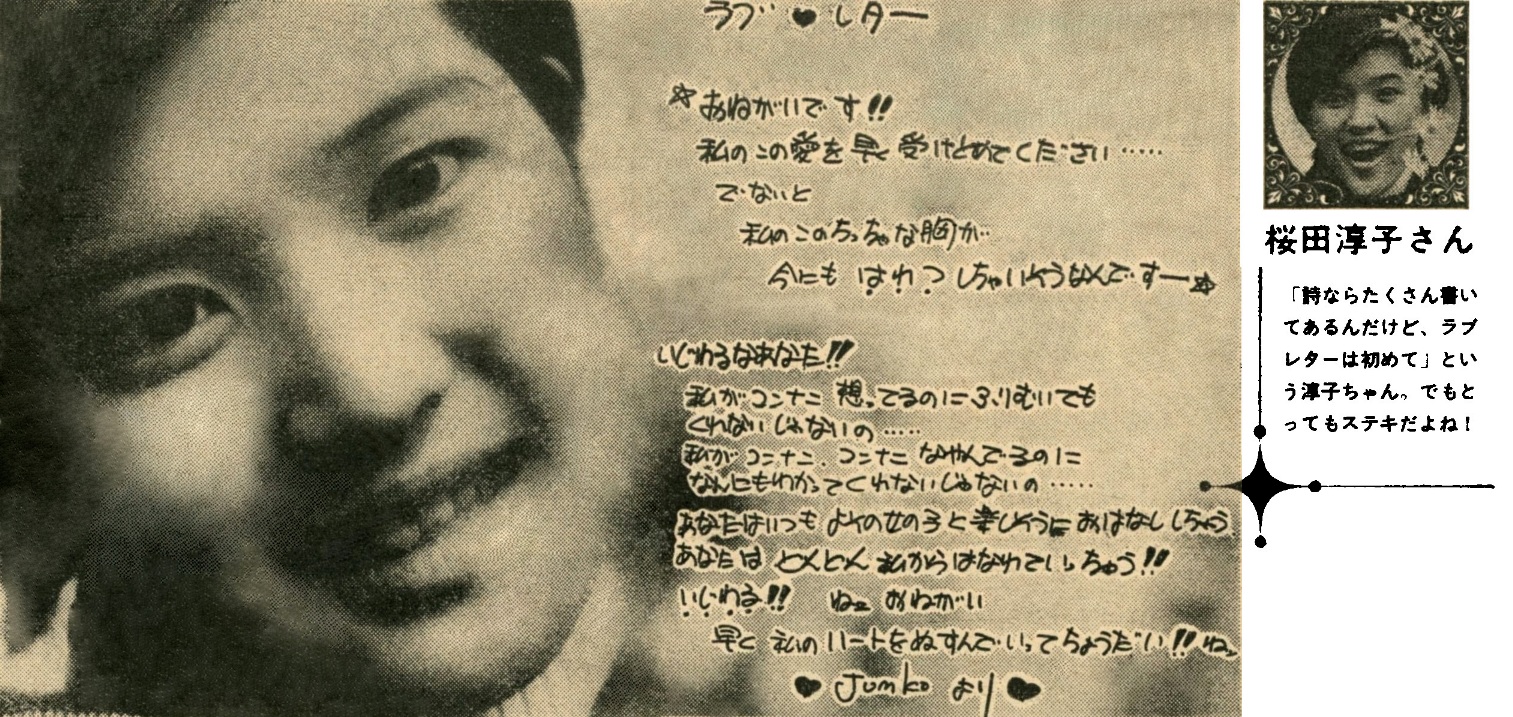 ラブ♥レター
☆おねがいです!!
私のこの愛を早く受けとめてください……
でないと
私のこのちっちゃな胸が…
今にも はれつしちゃいそうなんです—☆
いじわるなあなた!!
私がコンナニ 想ってるのにふりむいても
くれないじゃないの……
私がコンナニ、コンナニ なやんでるのに
なんにもわかってくれないじゃないの……
あなたはいつも よその女の子と楽しそうに おはなししちゃう
あなたは どんどん 私からはなれていっちゃう!!
いじわる!! ねェ おねがい
早く 私のハートをぬすんでいってちょうだい!! ねっ
♥ Junko より ♥
桜田淳子さん
「詩ならたくさん書い
てあるんだけど、ラブ
レターは初めて」とい
う淳子ちゃん。でもと
ってもステキだよね!